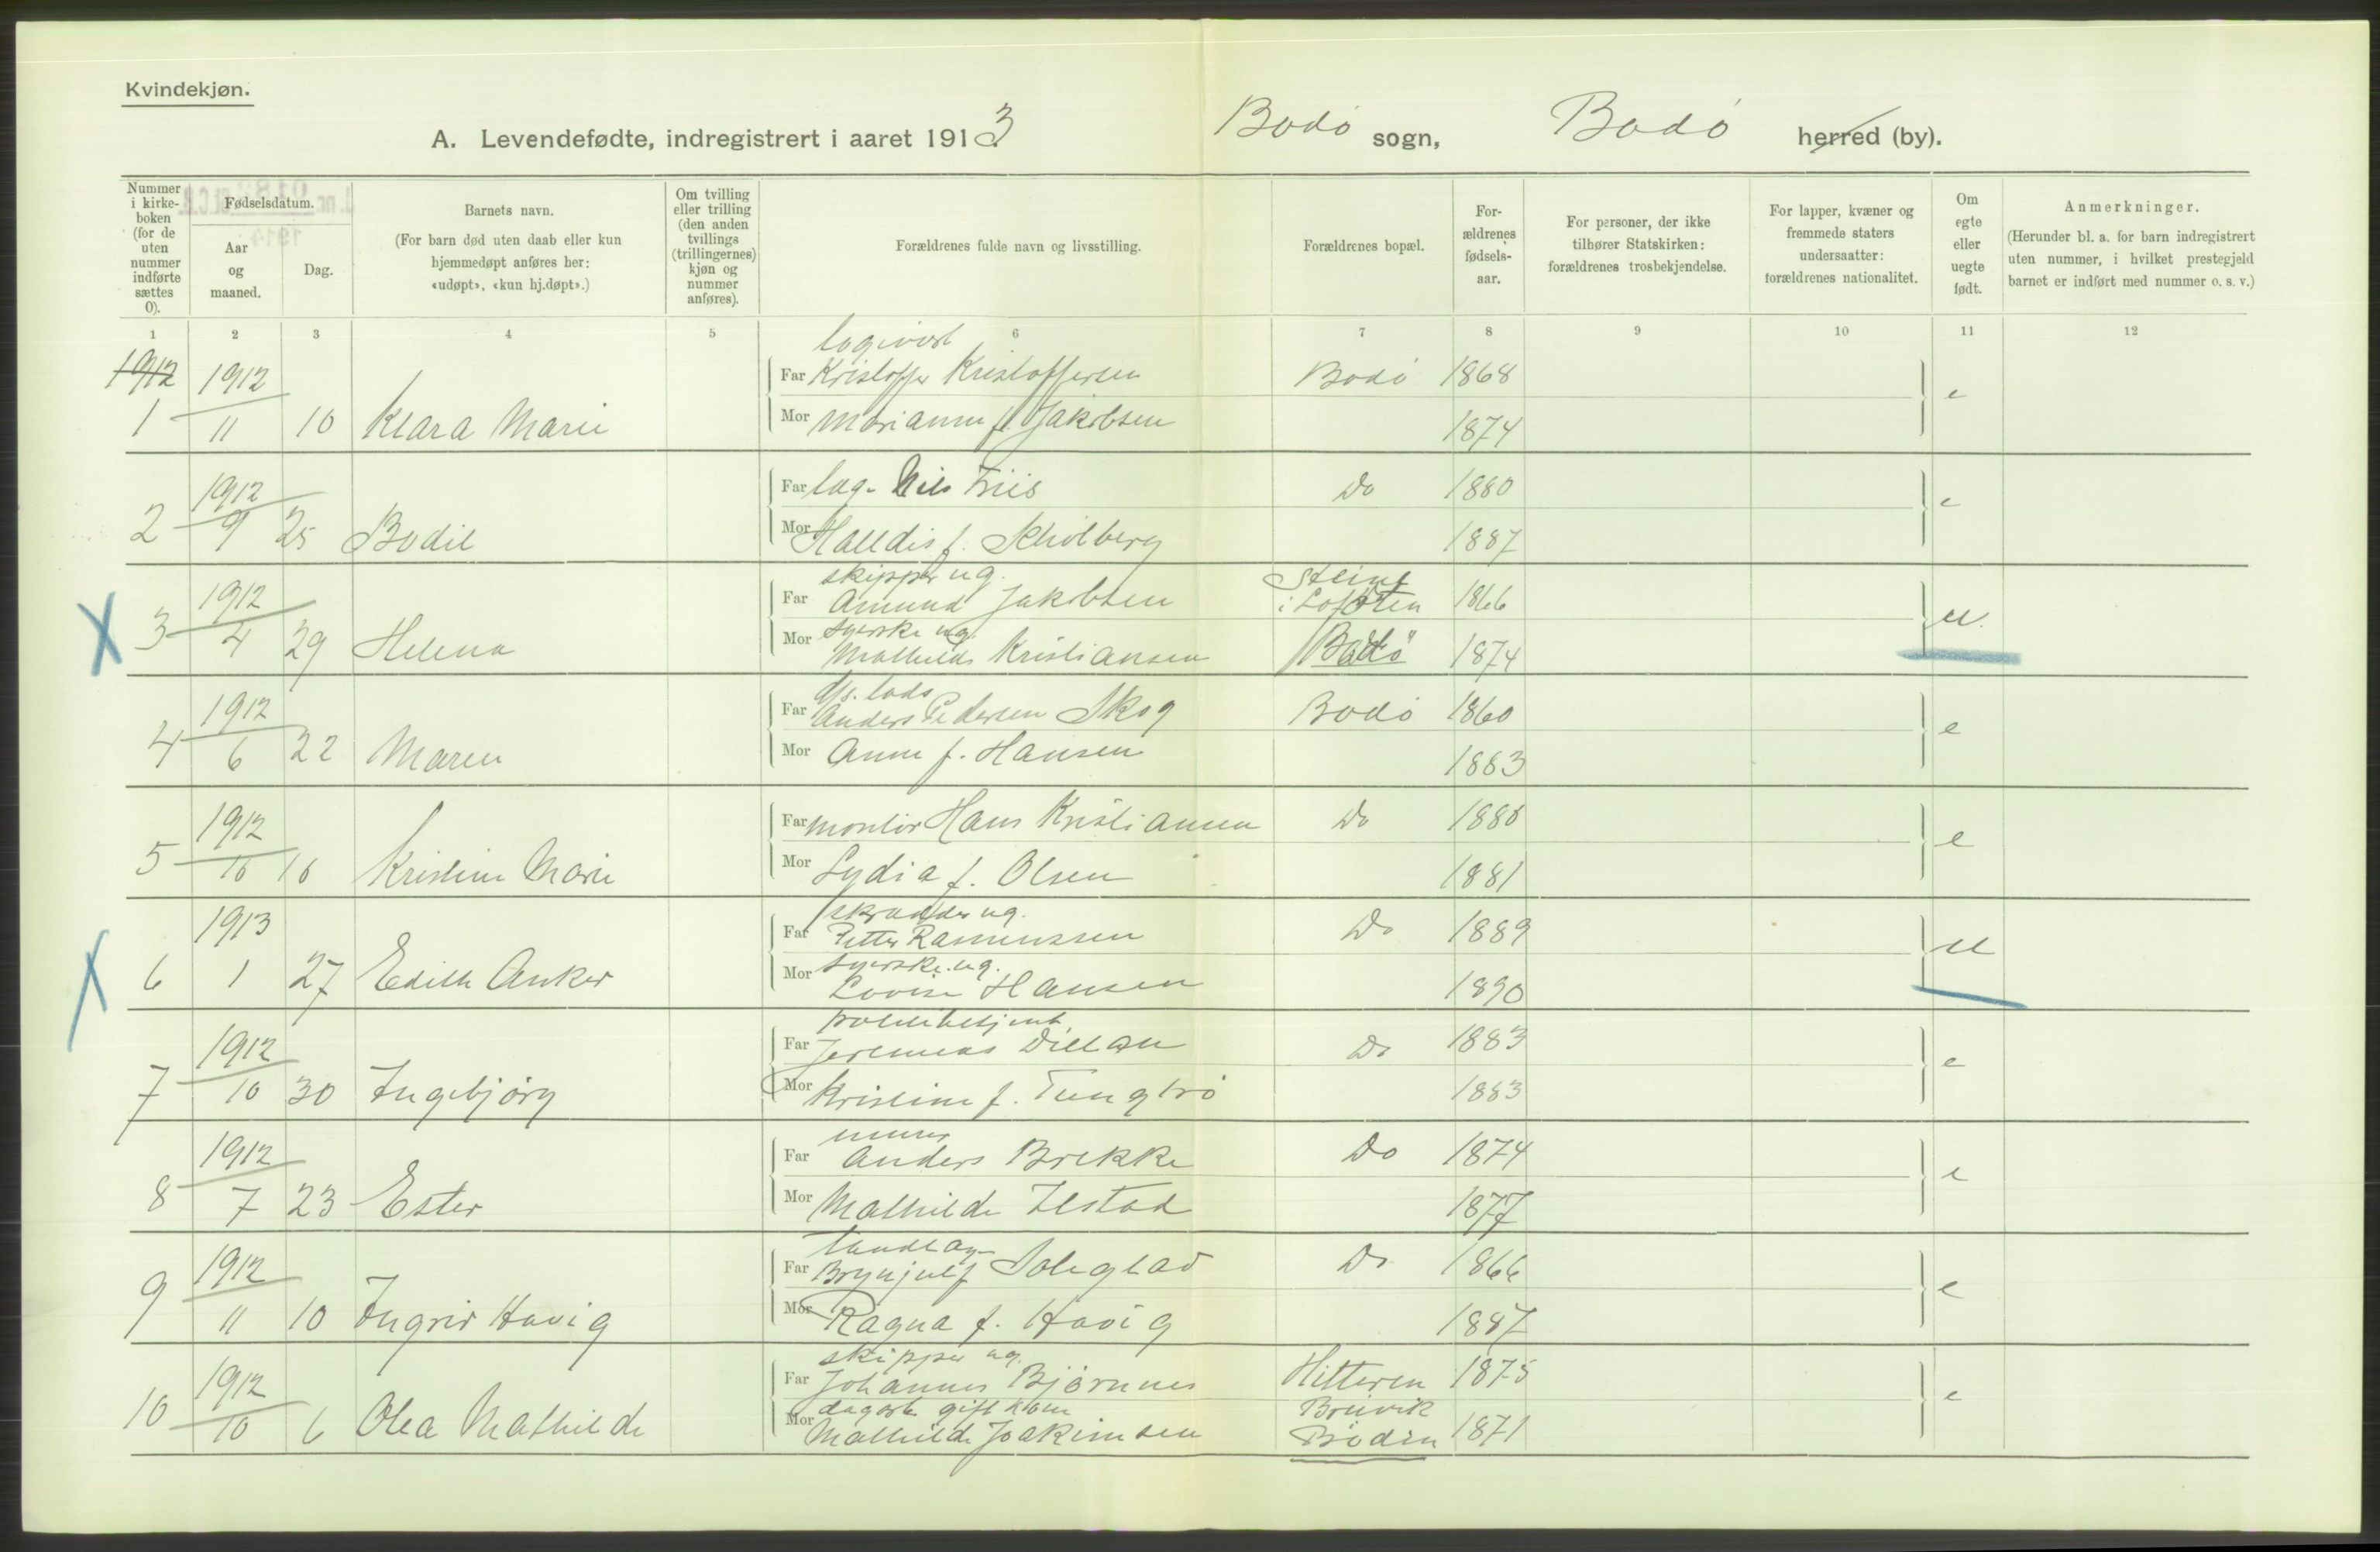 Kvindekjøn.
A. Levendefødte, indregistrert i aaret 1913 Bodø sogn, Bodø herred (by).
Nummer i kirke-boken (for de uten nummer indførte sættes 0).
Fødselsdatum.
Aar og maaned.
Dag.
Barnets navn.
(For barn død uten daab eller kun hjemmedøpt anføres her: «udøpt», «kun hj.døpt».)
Om tvilling eller trilling (den anden tvillings (trillingernes) kjøn og nummer anføres).
Forældrenes fulde navn og livsstilling.
Forældrenes bopæl.
For-ældrenes fødsels-aar.
For personer, der ikke tilhører Statskirken: forældrenes trosbekjendelse.
For lapper, kvæner og fremmede staters undersaatter: forældrenes nationalitet.
Om egte eller uegte født.
Anmerkninger.
(Herunder bl. a. for barn indregistrert uten nummer, i hvilket prestegjeld barnet er indført med nummer o. s. v.)
1 2 3 4 5 6 7 8 9 10 11 12
1912 1912 Far Kristoffer Kristoffersen Bodø 1868 e
1 11 10 Klara Marie Mor Marianne f. Jakobsen 1874
1912 Far Nils Friis Do 1880 e
2 9 25 Bodil Mor Halldis f. Schölberg 1887
skipper ug. Steine
1912 Far Amund Jakobsen i Lofoten 1866 u.
syerske ug.
3 4 29 Helena Mor Mathilde Kristiansen Bodø 1874
lods
1912 Far Anders Pedersen Skog Bodø 1860 e
4 6 22 Maren Mor Anne f. Hansen 1883
1912 Far montør Hans Kristiansen Do 1880 e
5 10 16 Kristine Marie Mor Lydia f. Olsen 1881
skrædder ug.
1913 Far Petter Rasmussen Do 1889 u
syerske ug.
6 1 27 Edith Anker Mor Lovise Hansen 1890
politibetjent
1912 Far Jeremias Dillan Do 1883 e
7 10 30 Ingebjørg Mor Kristine f. 1883
murer
1912 Far Anders Brekke Do 1874 e
8 7 23 Ester Mor Mathilde Ilstad 1877
tandlæge
1912 Far Brynjulf Soleglad Do 1866 e
9 11 10 Ingrid Havig Mor Ragna f. Havig 1887
skipper ug.
1912 Far Johannes Bjørnnes Hitteren 1875 e
gift kone Breivik
10 10 6 Olea Mathilde Mor Mathilde Joakimsen Bodin 1871